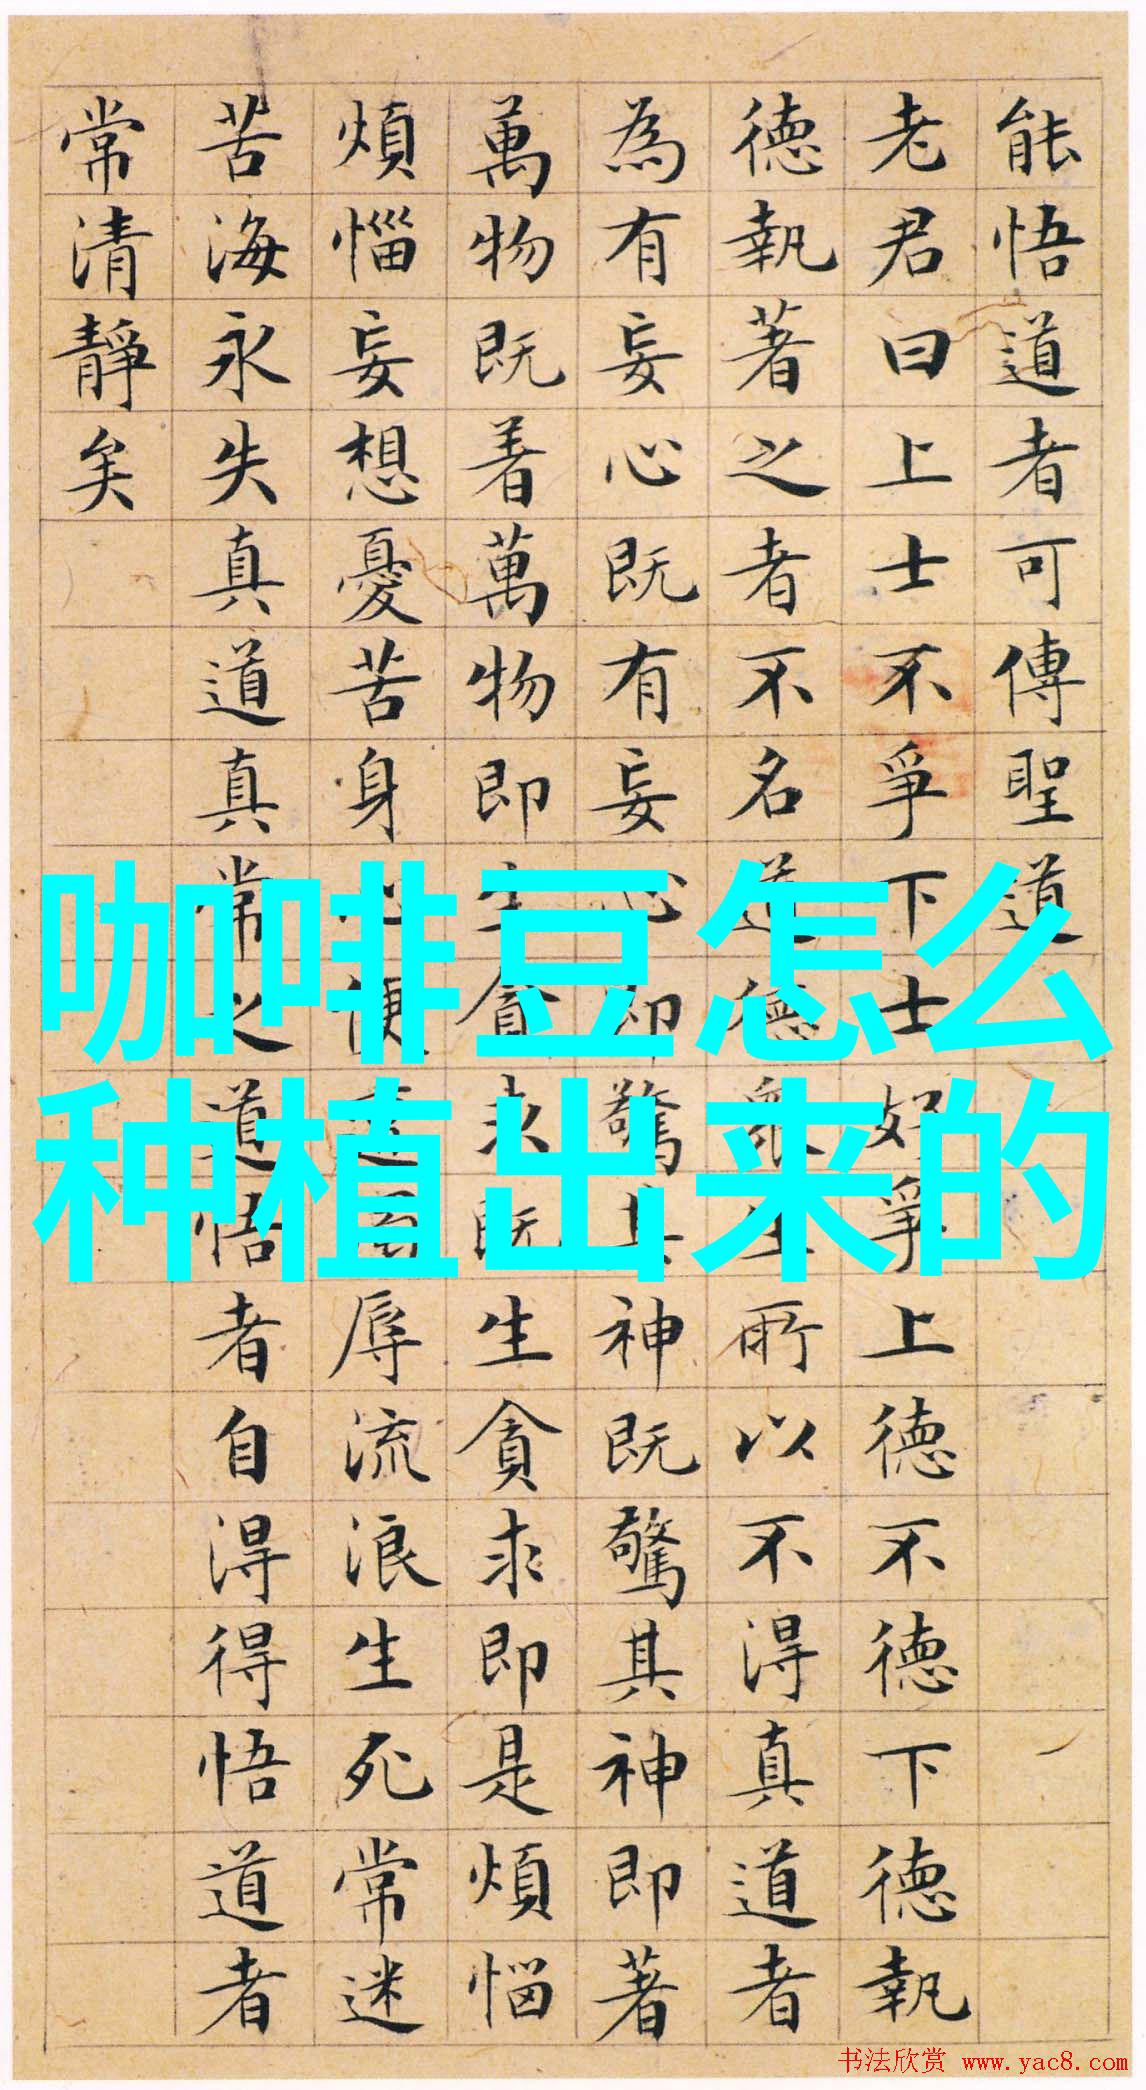 能悟道者可傳聖道
老君曰上士不爭下士好爭上德不德下德執
德執著之者不名道德眾生所以不得真道者
為有妄心既有妄心即驚其神既驚其神即著
萬物既着萬物即生貪求既生貪求即是煩惱
煩惱妄想憂苦身心便辱流浪生死常迷
苦海永失真道真常之道悟者自得得悟道者
常清靜矣
咖啡豆怎么
种植出来的
书法欣赏 www.yac8.com